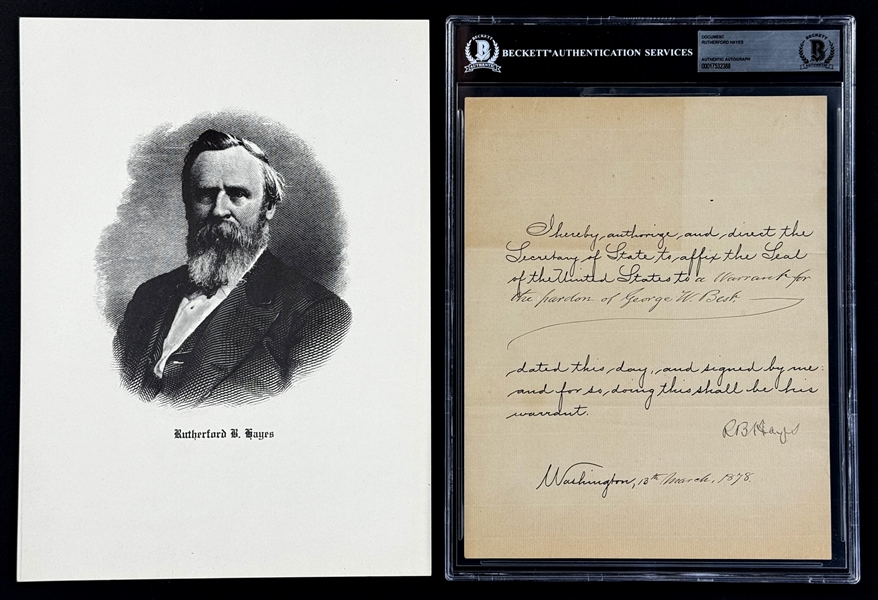 Rutherford B. Hayes
BECKETT AUTHENTICATION SERVICES
DOCUMENT
RUTHERFORD HAYES
AUTHENTIC AUTOGRAPH
00017532388
BECKETT
B
AUTHENTICATED
BECKETT
B
AUTHENTICATED
I hereby authorize and direct the
Secretary of State to affix the Seal
of the United States to a Warrant for
the pardon of George W. Best.
dated this day, and signed by me:
and for so doing this shall be his
warrant.
R B Hayes
Washington, 13th March, 1878.